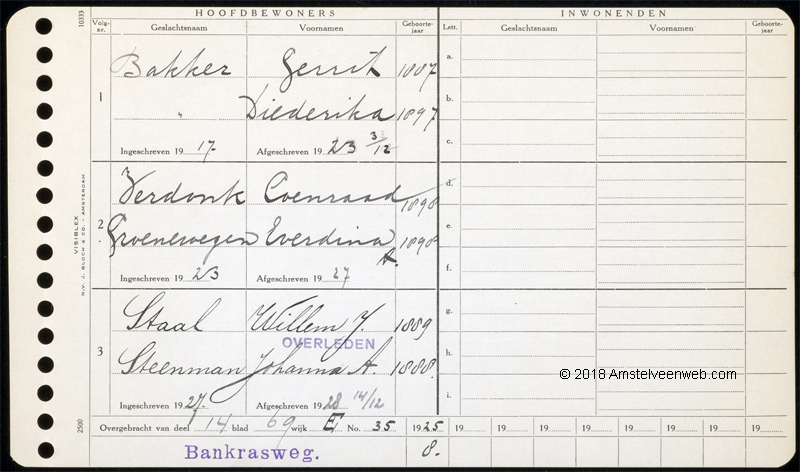 HOOFDBEWONERS
INWONENDEN
Volg-nr. Geslachtsnaam Voornamen Geboorte-jaar Lett. Geslachtsnaam Voornamen Geboorte-jaar
10333
VISIBLEX
N.V. J. BLOCH & CO. - AMSTERDAM
2500
1
Bakker Gerrit 1887
" Diederika 1897
Ingeschreven 19 17. Afgeschreven 19 23 3/12
2
Verdonk Coenraad 1898
Groenewegen Everdina A. 1898
Ingeschreven 19 23 Afgeschreven 19 27
3
Staal Willem J. 1889
OVERLEDEN
Steenman Johanna A. 1888.
Ingeschreven 19 27. Afgeschreven 19 28 14/12
a.
b.
c.
d.
e.
f.
g.
h.
i.
© 2018 Amstelveenweb.com
Overgebracht van deel 14 blad 69 wijk E No. 35 1925 19 19 19 19 19 19 19 19
Bankrasweg. 8.